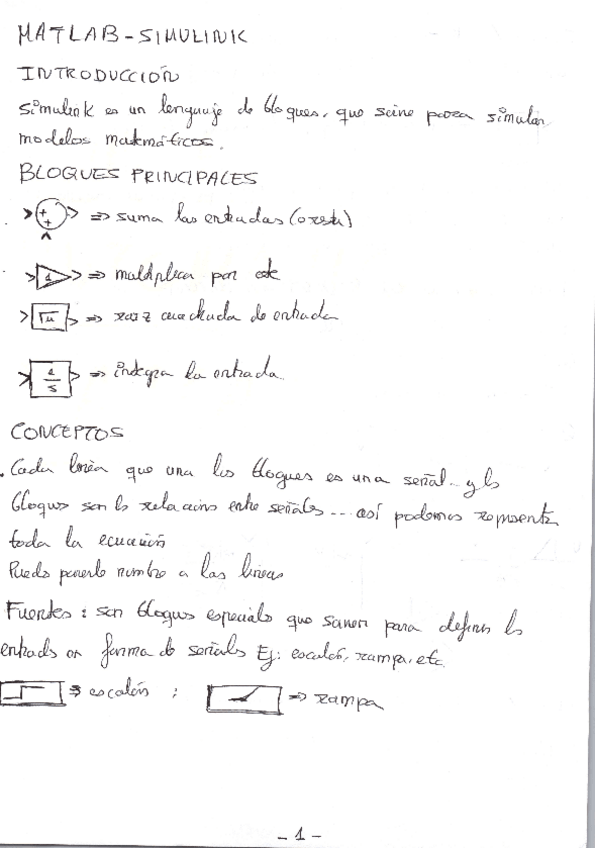 MATLAB-SIMULINK
INTRODUCCIÓN
Simulink es un lenguaje de bloques, que sirve para simular
modelos matemáticos.
BLOQUES PRINCIPALES
+ + => suma las entradas (o resta)
1 => multiplica por cte
√u => raíz cuadrada de entrada
1/s => integra la entrada
CONCEPTOS
. Cada línea que una los bloques es una señal... y los
bloques son las relaciones entre señales... así podemos representar
toda la ecuación
Puedo ponerle nombre a las líneas
Fuentes: son bloques especiales que sirven para definir las
entradas en forma de señales Ej: escalón, rampa, etc.
=> escalón ; => rampa
- 1 -